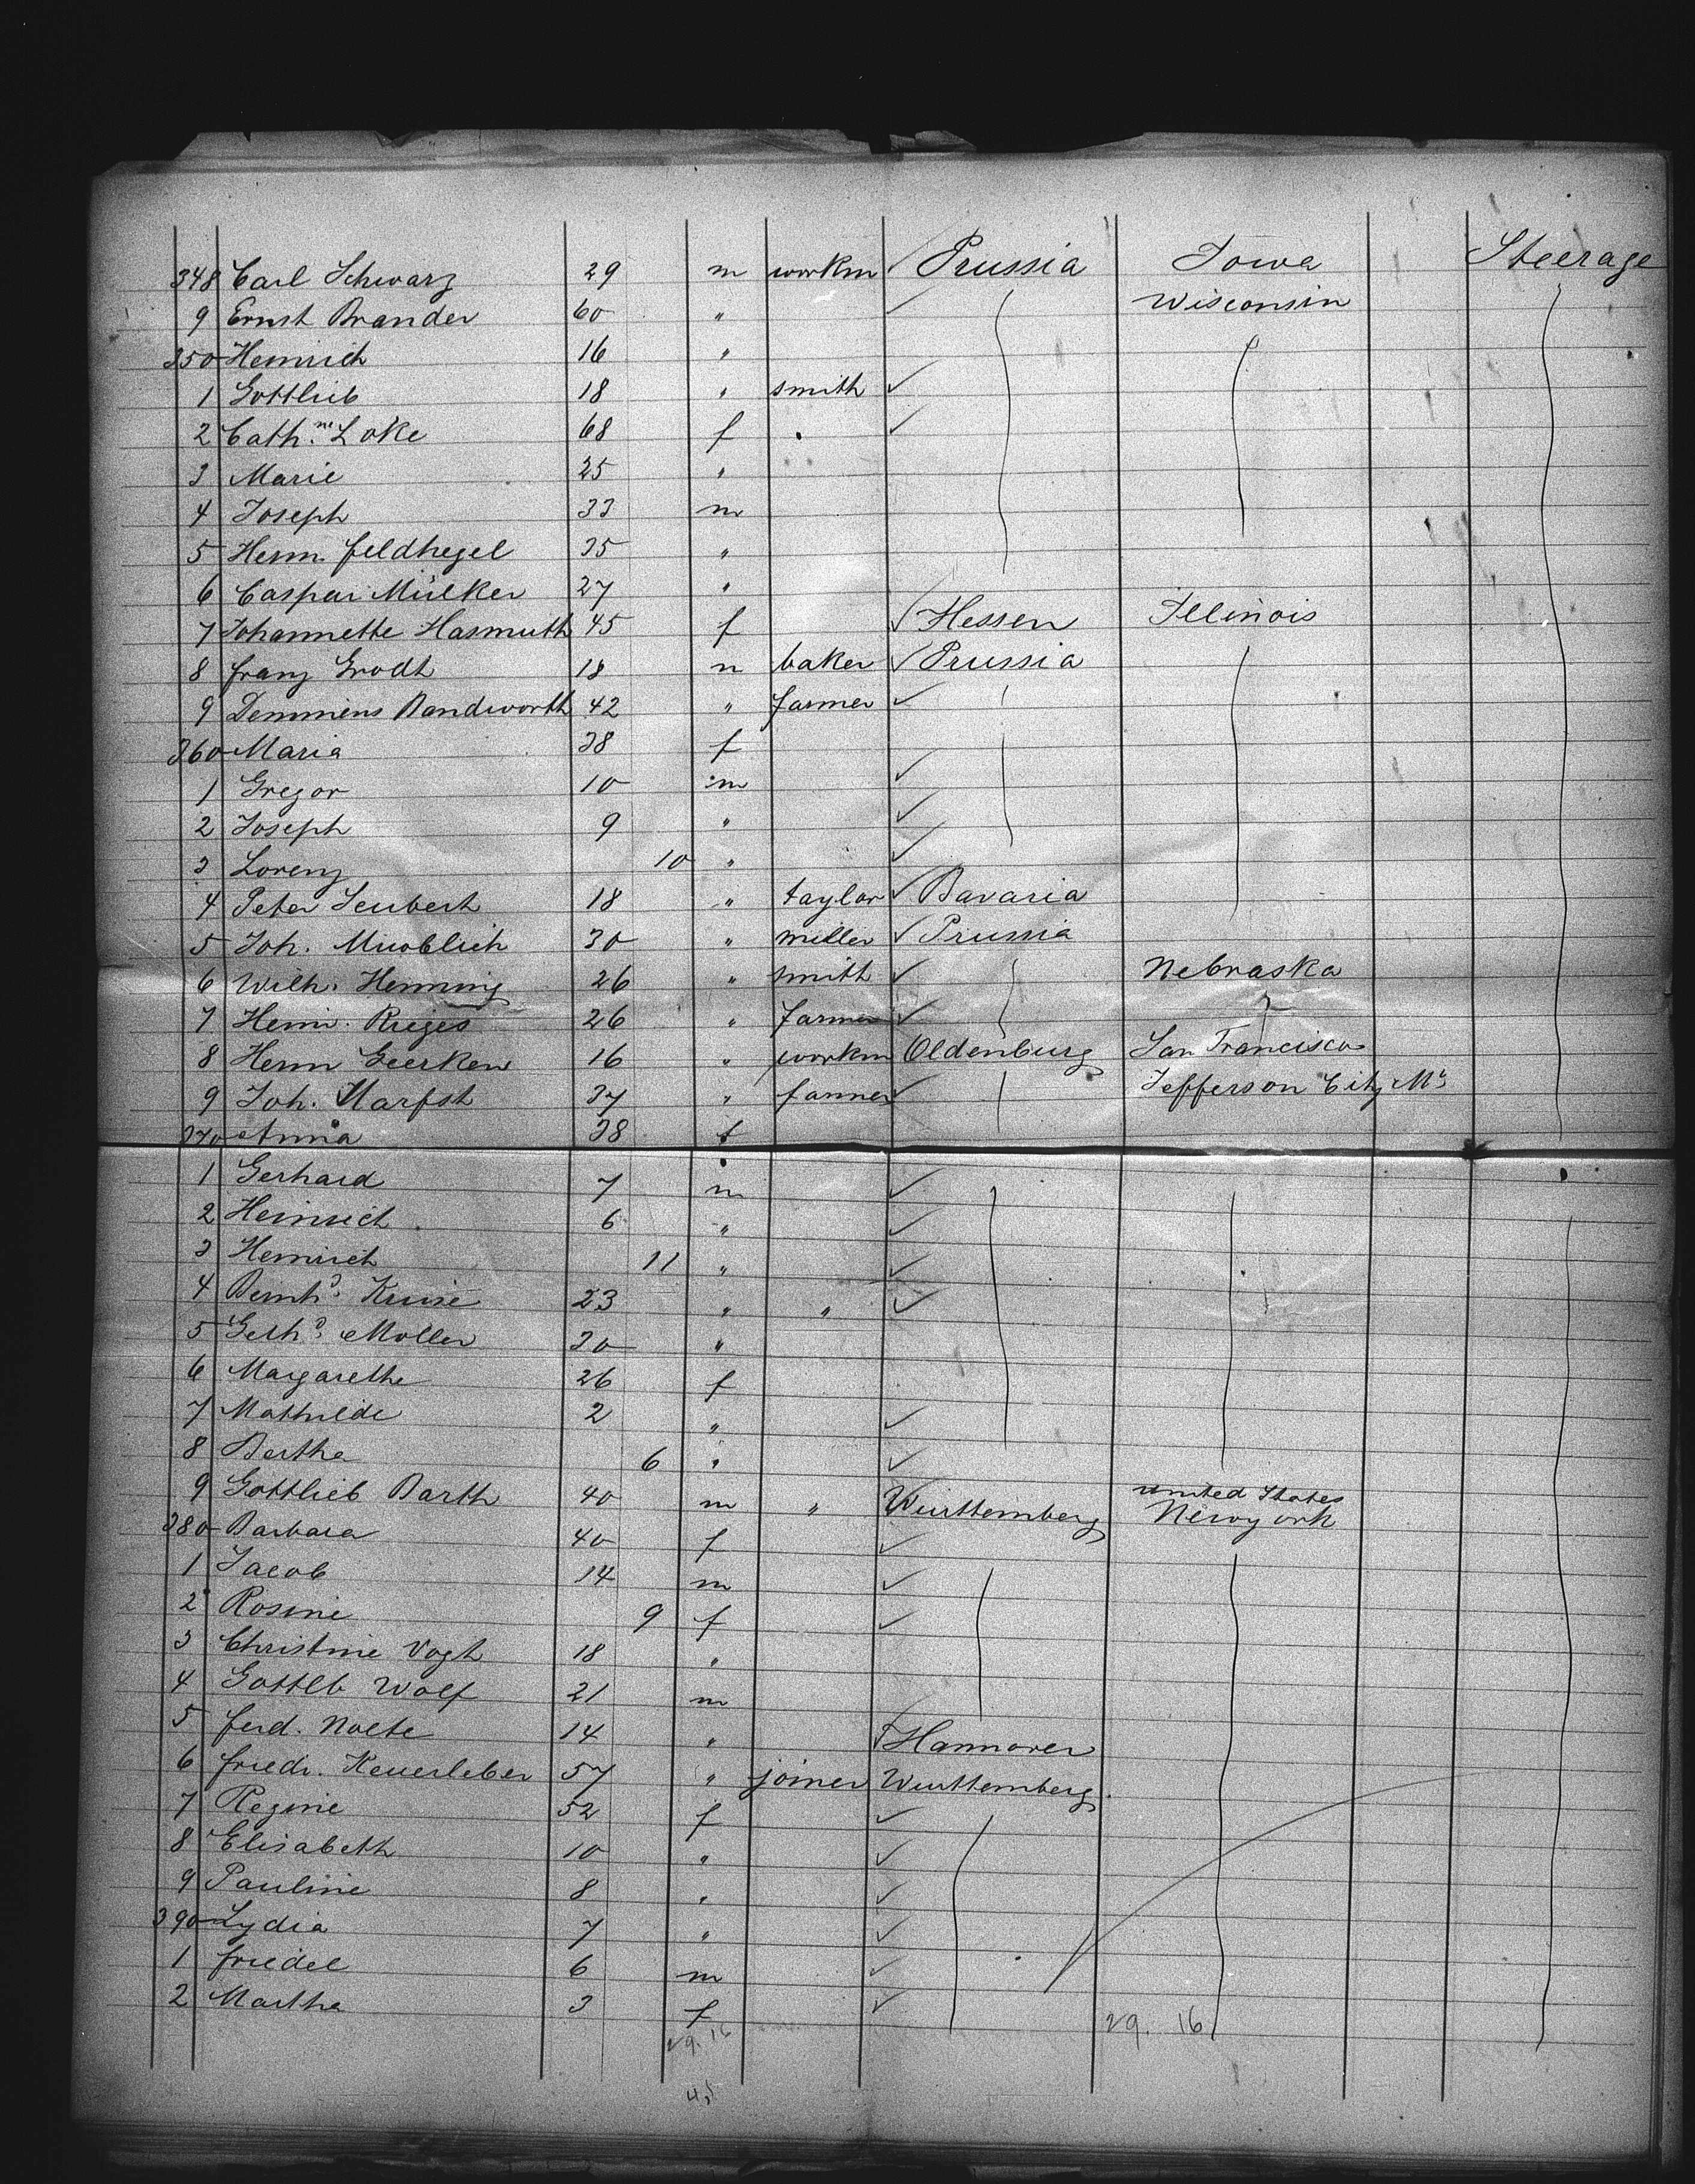 348 Carl Schwarz 29 m workm Prussia Iowa Steerage
9 Ernst Brander 60 " Wisconsin
350 Heinrich 16 "
1 Gottlieb 18 " smith
2 Cath.ne Loke 68 f
3 Marie 25 "
4 Joseph 33 m
5 Herm. Feldhegel 35 "
6 Caspar Mülker 27 "
7 Johannette Hasmuth 45 f Hessen Illinois
8 Franz Grodt 18 m baker Prussia
9 Demmens Bandworth 42 " farmer
360 Maria 38 f
1 Gregor 10 m
2 Joseph 9 "
3 Lorenz 10 "
4 Peter Seubert 18 " taylor Bavaria
5 Joh. 30 " miller Prussia
6 Wilh. Henning 26 " smith Nebraska
7 Heinr. Rieges 26 " farmer
8 Herm Geerken 16 " workm Oldenburg San Francisco
9 Joh. Harfst 37 " farmer Jefferson City Mo
370 Anna 38 f
1 Gerhard 7 m
2 Heinrich 6 "
3 Heinrich 11 "
4 Bernhd. Kruse 23 " "
5 Gerhd. Moller 30 "
6 Margarethe 26 f
7 Mathilde 2 "
8 Bertha 6 "
9 Gottlieb Barth 40 m " Wurttemberg United States Newyork
380 Barbara 40 f
1 Jacob 14 m
2 Rosine 9 f
3 Christine Vogt 18 "
4 Gottlb Wolf 21 m
5 Ferd. Nolte 14 " Hannover
6 Friedr. Keuerleber 57 " joiner Wurttemberg
7 Regine 52 f
8 Elisabeth 10 "
9 Pauline 8 "
390 Lydia 7 "
1 Friedel 6 m
2 Martha 3 f
29.16 29. 16
45